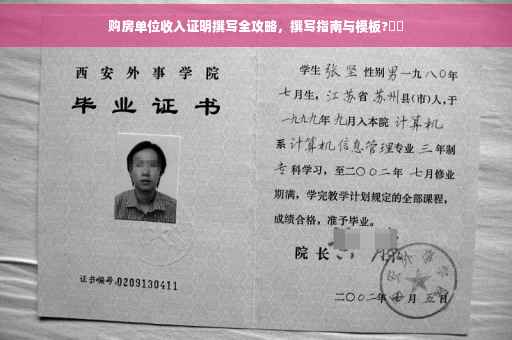 购房单位收入证明撰写全攻略，撰写指南与模板?
西安外事学院
毕业证书
证书编号:0209130411
学生 张坚 性别 男 一九八〇年
七月生，江苏省苏州县(市)人，于
一九九九年九月入本院 计算机
系 计算机信息管理 专业 三 年制
专科学习，至二〇〇二年 七月修业
期满，学完教学计划规定的全部课程，
成绩合格，准予毕业。
院长
二〇〇二年 月五日